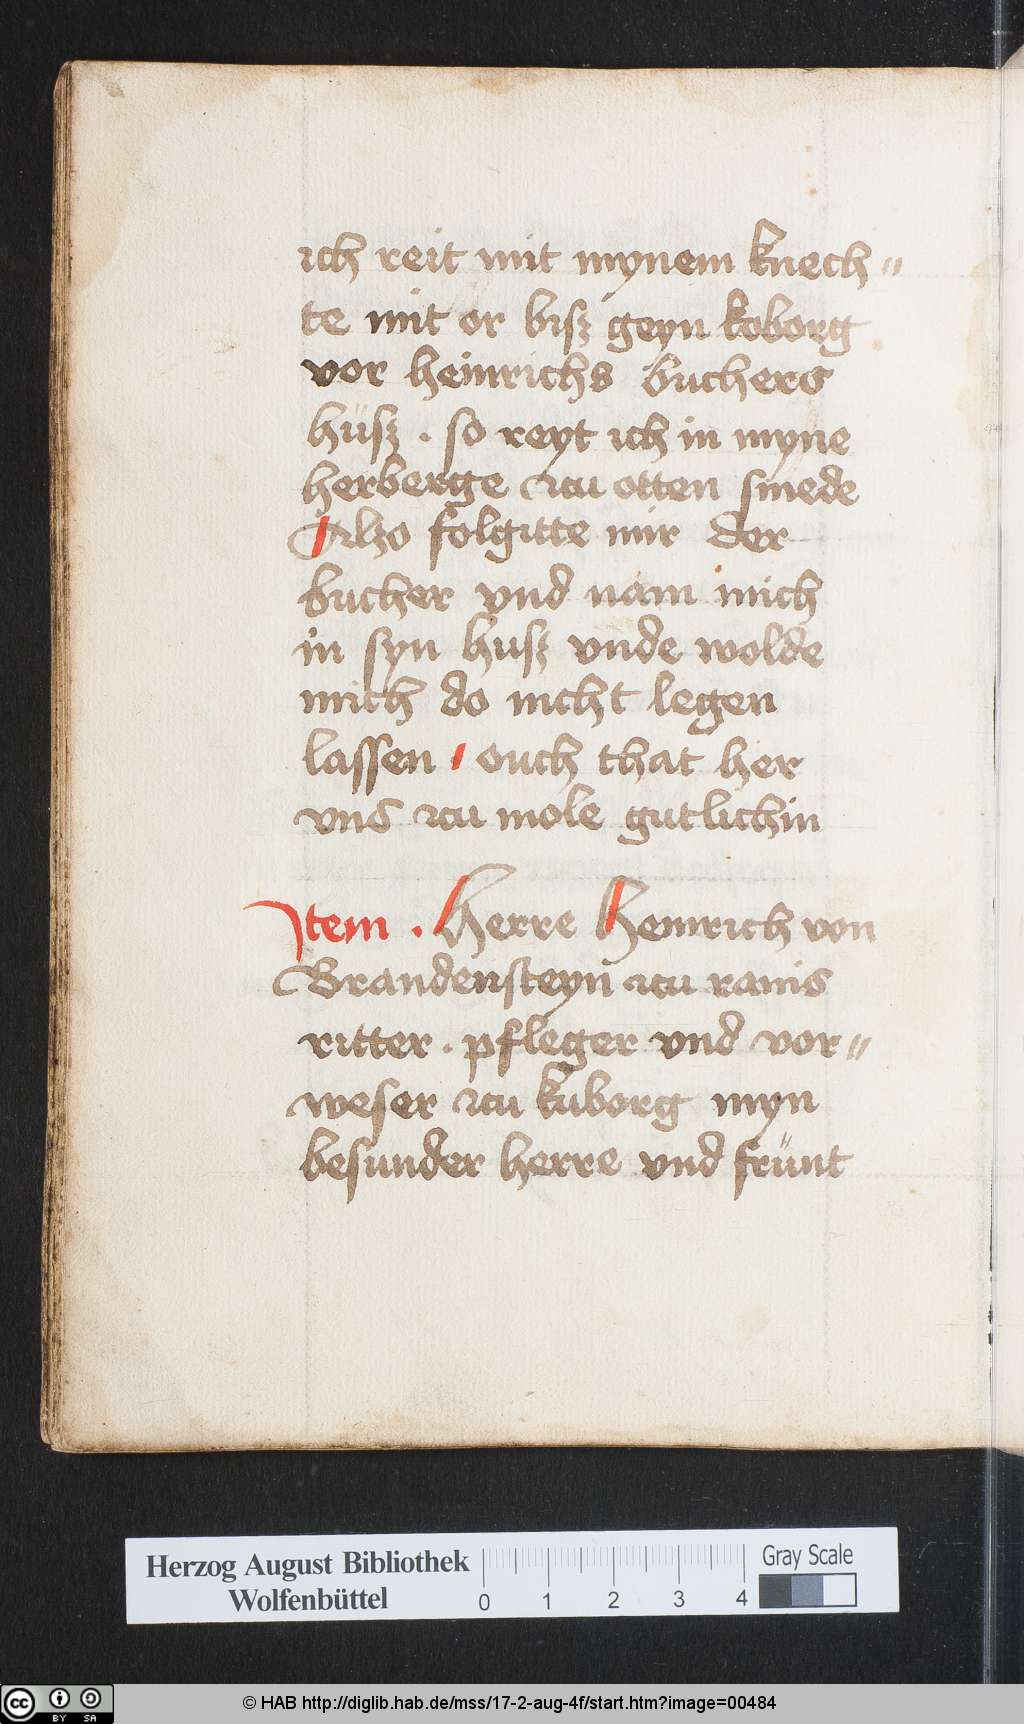 ich reit mit mynem knech⸗
te mit or bisz geyn koborg
vor heinrichs buchers
hüsz . so reyt ich in myne
herberge zcu otten smede
Alzo folgitte mir der
bucher vnd nam mich
in syn husz vnde wolde
mich do nicht legen
lassen / ouch that her
vns zcu mole gutlichin
Item . Herre Heinrich von
Brandensteyn zcu ranis
ritter . pfleger vnd vor⸗
weser zcu kuborg myn
besunder herre vnd frünt
Herzog August Bibliothek
Wolfenbüttel
0 1 2 3 4
Gray Scale
cc BY SA
© HAB http://diglib.hab.de/mss/17-2-aug-4f/start.htm?image=00484